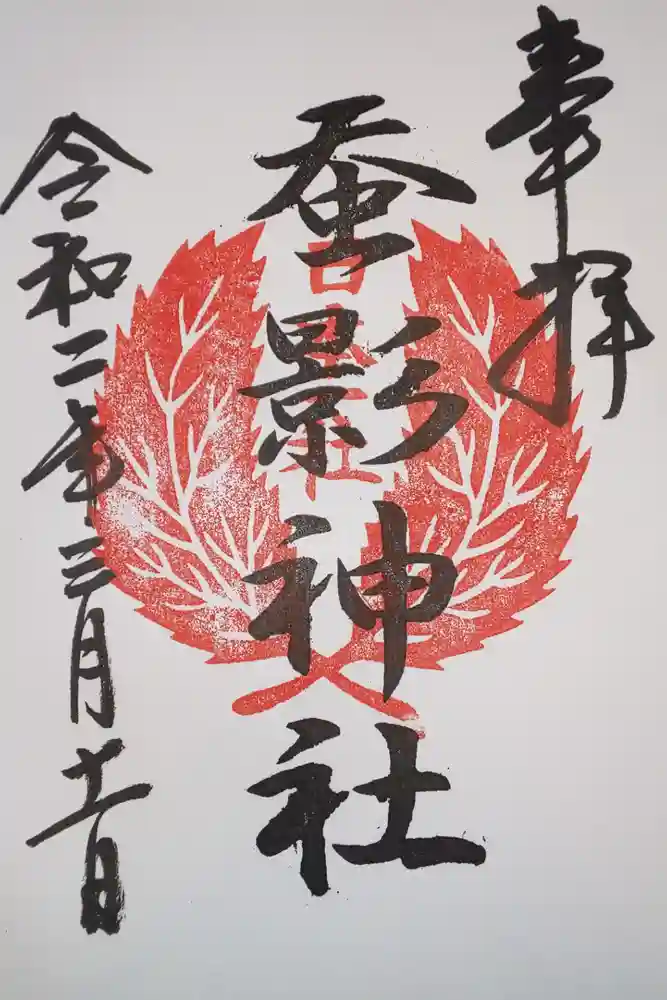 奉拝
蚕影神社
令和二年三月十一日